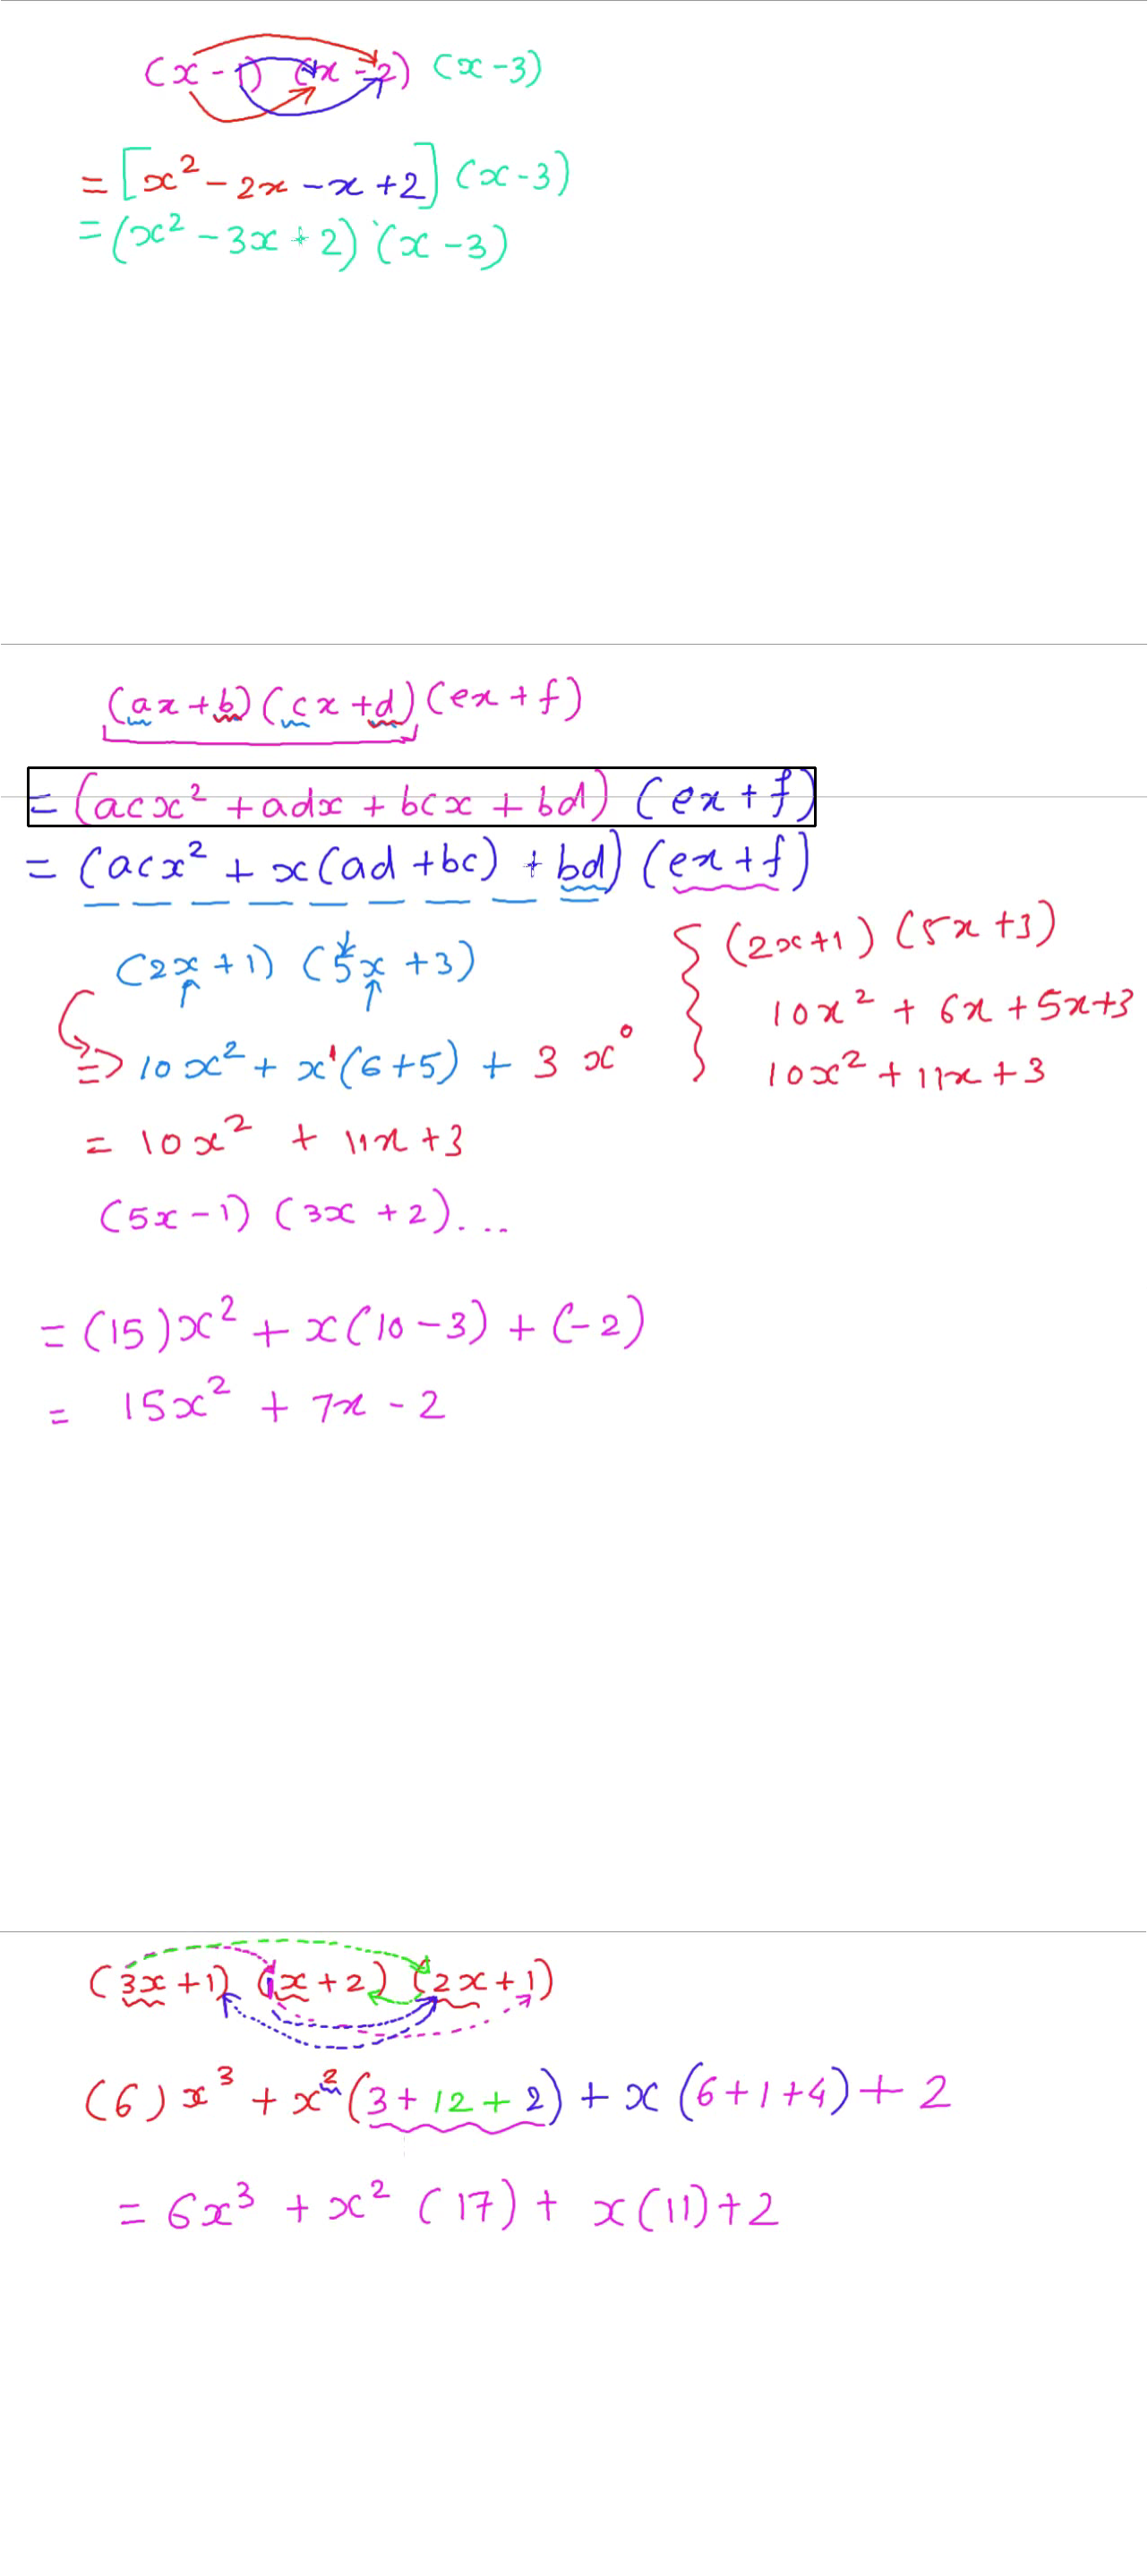 (x - 1) (x - 2) (x - 3)
= [x² - 2x - x + 2] (x - 3)
= (x² - 3x + 2) (x - 3)
(ax + b) (cx + d) (ex + f)
= (acx² + adx + bcx + bd) (ex + f)
= (acx² + x(ad + bc) + bd) (ex + f)
(2x + 1) (5x + 3)
=> 10x² + x¹(6 + 5) + 3x⁰
= 10x² + 11x + 3
{ (2x + 1) (5x + 3)
10x² + 6x + 5x + 3
10x² + 11x + 3
(5x - 1) (3x + 2)...
= (15)x² + x(10 - 3) + (-2)
= 15x² + 7x - 2
(3x + 1) (x + 2) (2x + 1)
(6)x³ + x²(3 + 12 + 2) + x(6 + 1 + 4) + 2
= 6x³ + x²(17) + x(11) + 2